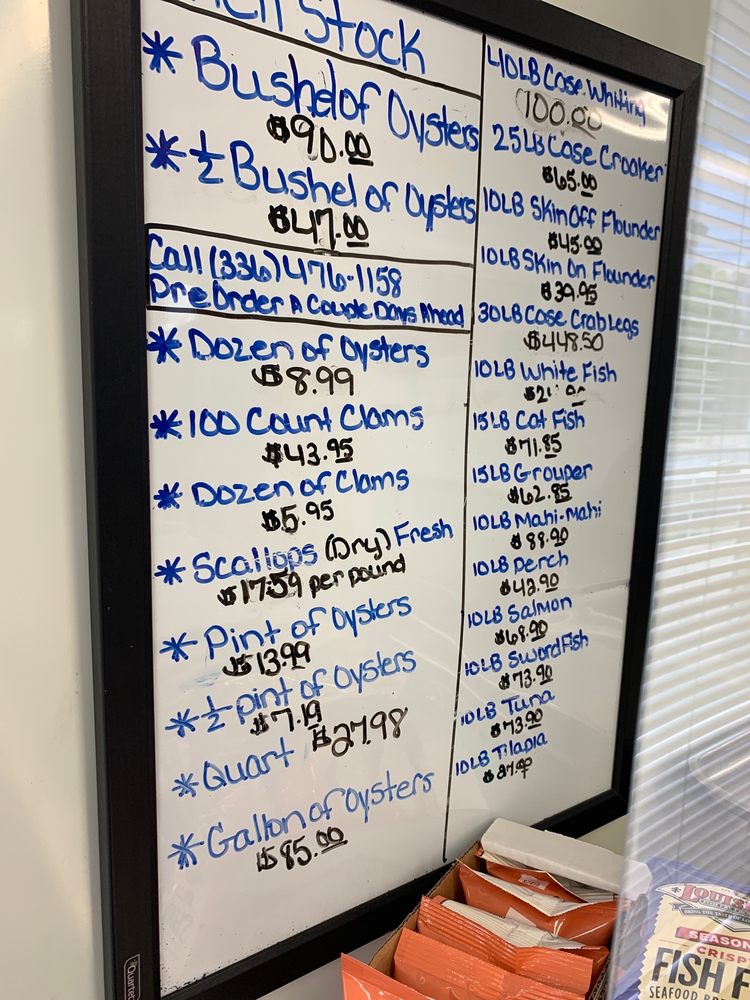 Stock
* Bushel of Oysters
$90.00
* ½ Bushel of Oysters
$47.00
Call (336) 476-1158
Pre Order A Couple Days Ahead
* Dozen of Oysters
$8.99
* 100 Count Clams
$43.95
* Dozen of Clams
$5.95
* Scallops (Dry) Fresh
$17.59 per pound
* Pint of Oysters
$13.99
* ½ pint of Oysters
$7.19
* Quart $27.98
* Gallon of Oysters
$85.00
40LB Case Whiting
100.00
25LB Case Croaker
$65.00
10LB Skin Off Flounder
$45.99
10LB Skin On Flounder
$39.95
30LB Case Crab Legs
$448.50
10LB White Fish
15LB Cat Fish
$71.85
15LB Grouper
$62.85
10LB Mahi-Mahi
$89.90
10LB Perch
$43.90
10LB Salmon
$68.90
10LB Sword Fish
$73.90
10LB Tuna
$73.90
10LB Tilapia
Quartet
SEASON
CRISP
FISH F
SEAFOOD